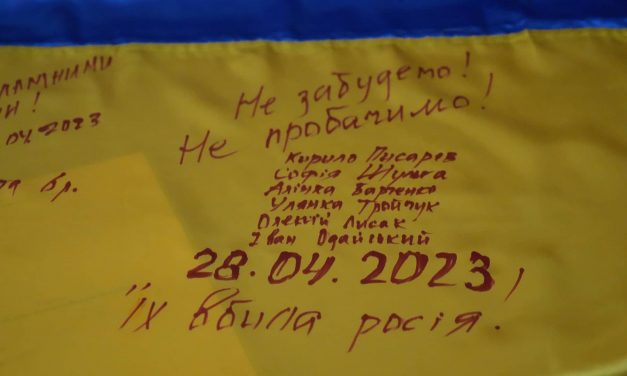 ЛАМНИМИ
И!
04 2023
бр.
Не забудемо!
Не пробачимо!
Кирило Писарев
Софія Шульга
Алінка Вартенко
Улянка Тройчук
Олексій Лисак
Іван Одайський
28.04.2023,
їх вбила росія.